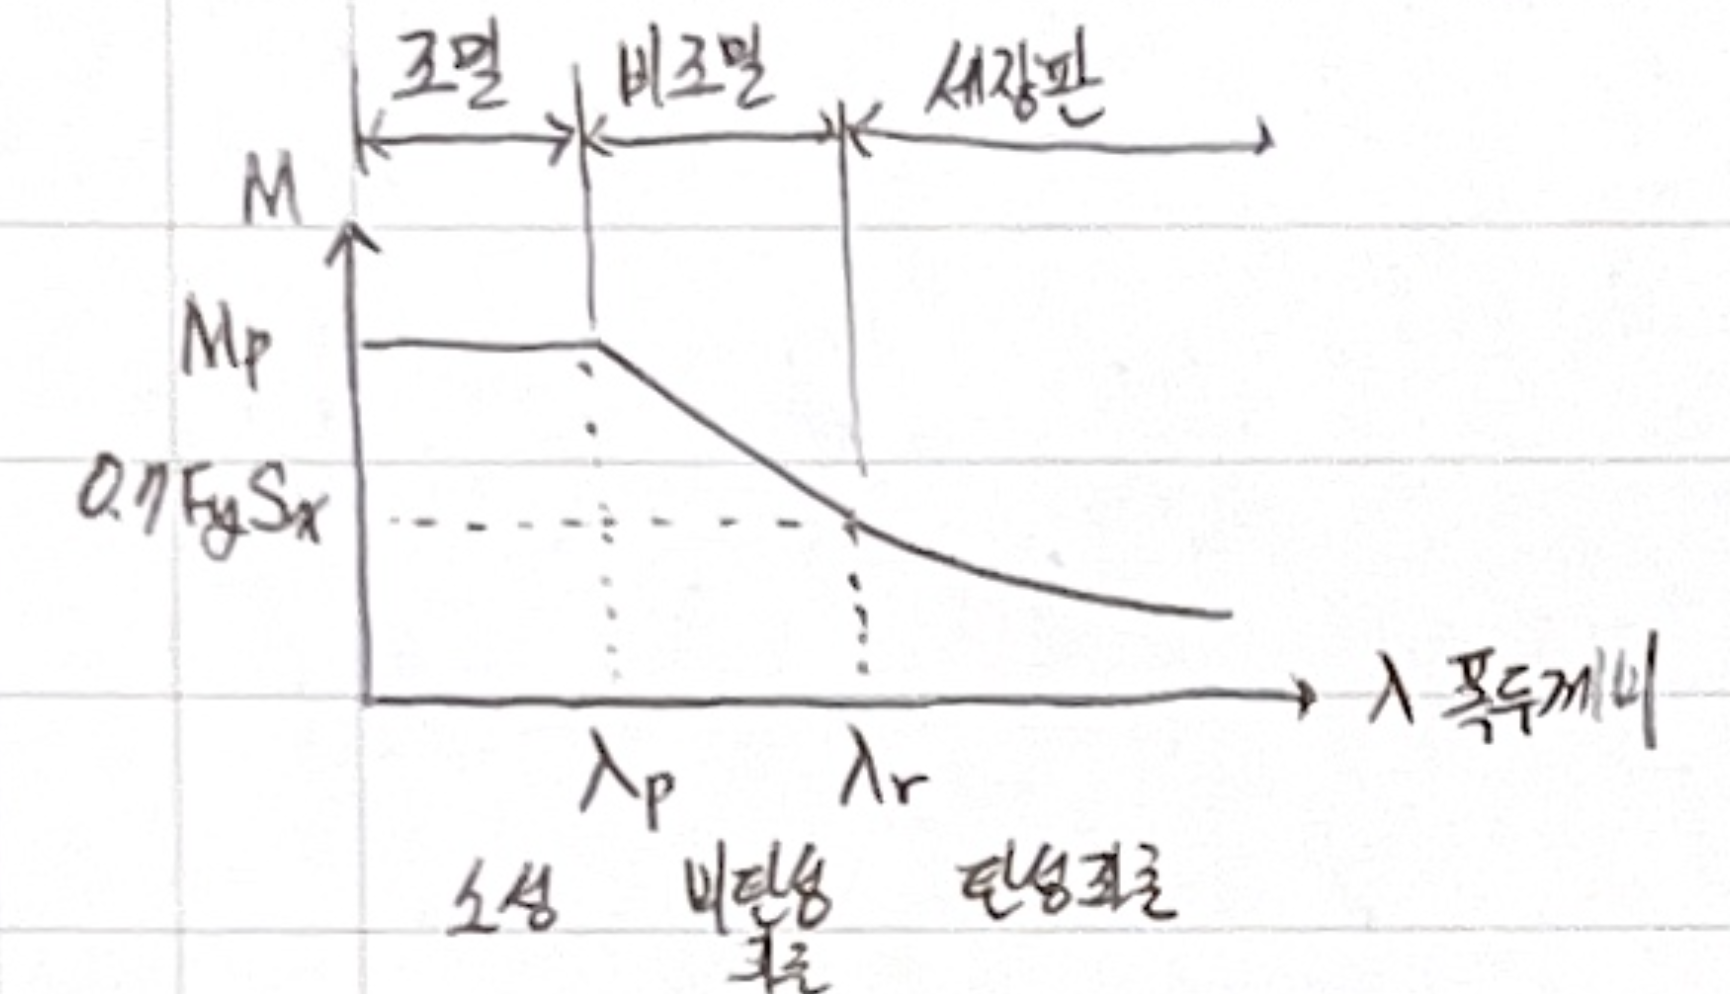 조밀 비조밀 세장판
M
Mp
0.7FySx
λ 폭두께비
λp λr
소성 비탄성 탄성좌굴
좌굴